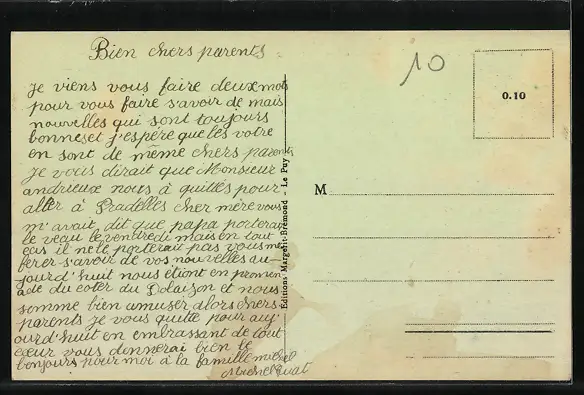 Bien chers parents
je viens vous faire deux mots
pour vous faire s'avoir de mais
nouvelles qui sont toujours
bonnes et j'espère que les votre
en sont de même chers parents
je vous dirait que Monsieur
andrieux nous à quittes pour
aller à Pradelles cher mère vous
m'avait, dit que papa porterai
le veau le vendredi mais en tout
cas il ne le porterait pas vous me
ferer s'avoir de vos nouvelles au-
jourd'huit nous étiont en promen
ade du coter du Dolaizon et nous
somme bien amuser alors chers
parents je vous quitte pour auj-
ourd'huit en embrassant de tout
cœur vous donnerai bien le
bonjours pour moi à la famille
Michel
10
0.10
M
Editions Margerit-Brémond - Le Puy